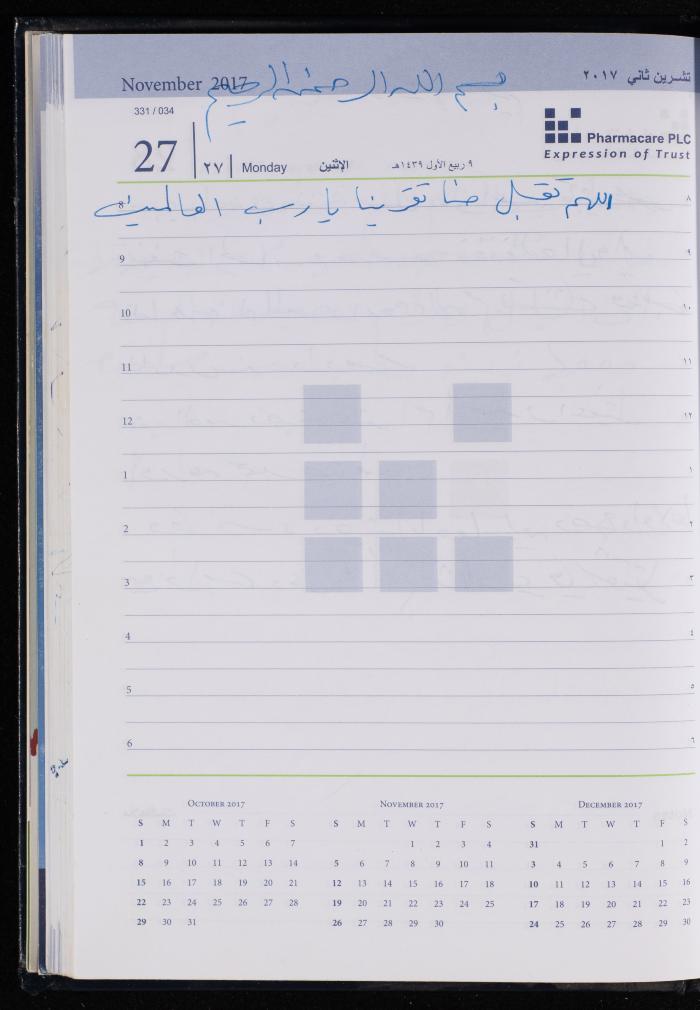 November 2017
تشرين ثاني ٢٠١٧
بسم الله الرحمن الرحيم
331 / 034
27
٢٧
Monday
الإثنين
٩ ربيع الأول ١٤٣٩هـ
Pharmacare PLC
Expression of Trust
اللهم تقبل منا تقربنا يا رب العالمين
8 ٨
9 ٩
10 ١٠
11 ١١
12 ١٢
1 ١
2 ٢
3 ٣
4 ٤
5 ٥
6 ٦
OCTOBER 2017
S M T W T F S
1 2 3 4 5 6 7
8 9 10 11 12 13 14
15 16 17 18 19 20 21
22 23 24 25 26 27 28
29 30 31
NOVEMBER 2017
S M T W T F S
1 2 3 4
5 6 7 8 9 10 11
12 13 14 15 16 17 18
19 20 21 22 23 24 25
26 27 28 29 30
DECEMBER 2017
S M T W T F S
31 1 2
3 4 5 6 7 8 9
10 11 12 13 14 15 16
17 18 19 20 21 22 23
24 25 26 27 28 29 30